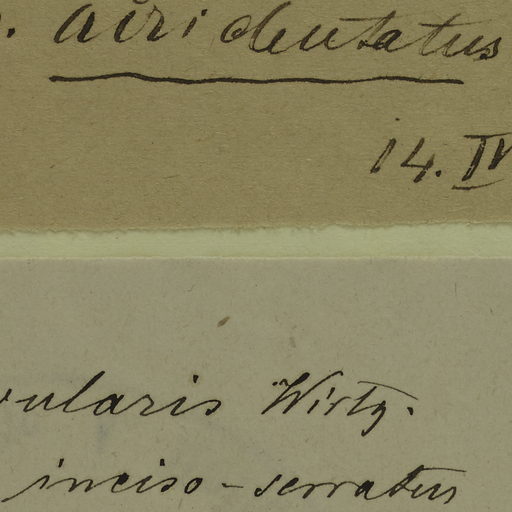 acridentatus
14. IV
vularis Wirtg.
inciso-serratus